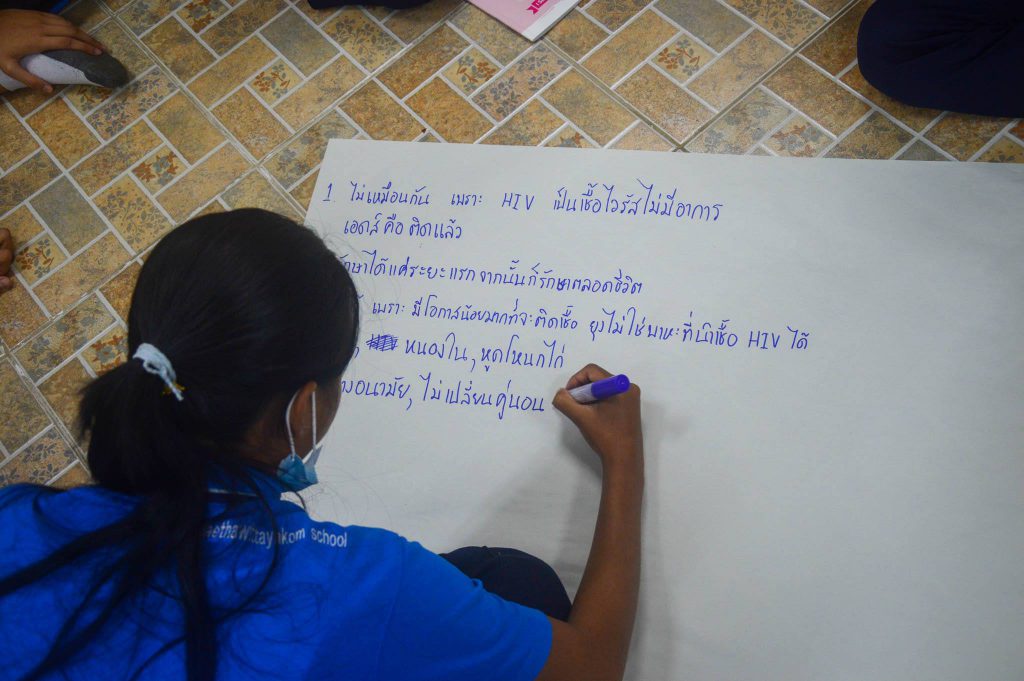 1 ไม่เหมือนกัน เพราะ HIV เป็นเชื้อไวรัสไม่มีอาการ
เอดส์ คือ ติดแล้ว
ได้แค่ระยะแรก จากนั้นก็รักษาตลอดชีวิต
เพราะ มีโอกาสน้อยมากที่จะติดเชื้อ ยุงไม่ใช่พาหะที่นำเชื้อ HIV ได้
หนองใน, หูดหงอนไก่
อนามัย, ไม่เปลี่ยนคู่นอน
school